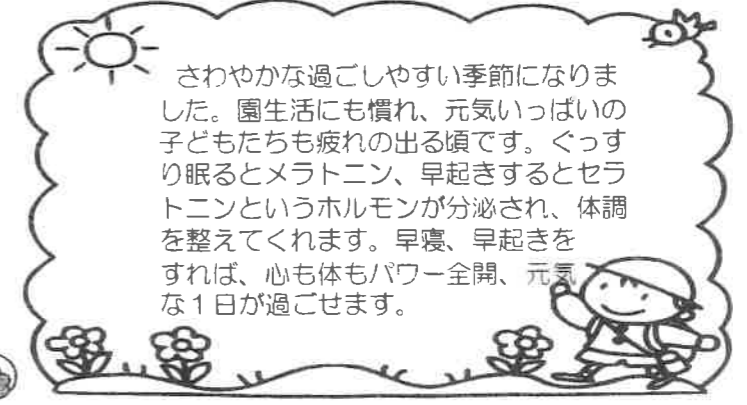 さわやかな過ごしやすい季節になりま
した。園生活にも慣れ、元気いっぱいの
子どもたちも疲れの出る頃です。ぐっす
り眠るとメラトニン、早起きするとセラ
トニンというホルモンが分泌され、体調
を整えてくれます。早寝、早起きを
すれば、心も体もパワー全開、元気
な1日が過ごせます。